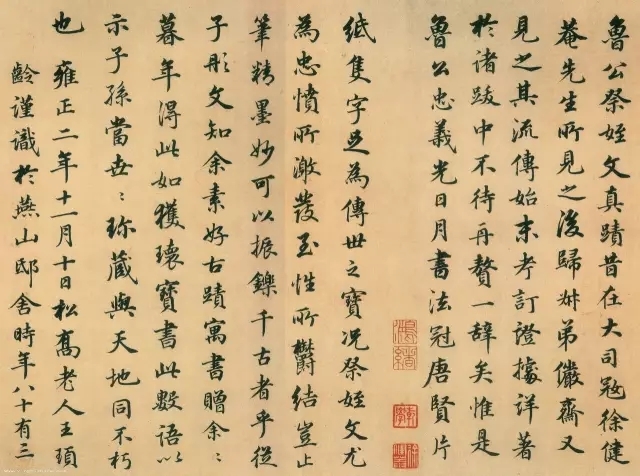 魯公祭姪文真蹟昔在大司寇徐健
菴先生所見之後歸舛弟儼齋又
見之其流傳始末考訂證據詳著
於諸跋中不待再贅一辭矣惟是
魯公忠義光日月書法冠唐賢片
紙隻字足為傳世之寶况祭姪文尤
為忠憤所激發至性所鬱結豈止
筆精墨妙可以振鑠千古者乎從
子彤文知余素好古蹟寓書贈余余
暮年得此如獲瓌寶書此數語以
示子孫當世世珍藏與天地同不朽
也 雍正二年十一月十日松喬老人王頊
齡謹識於燕山邸舍時年八十有三